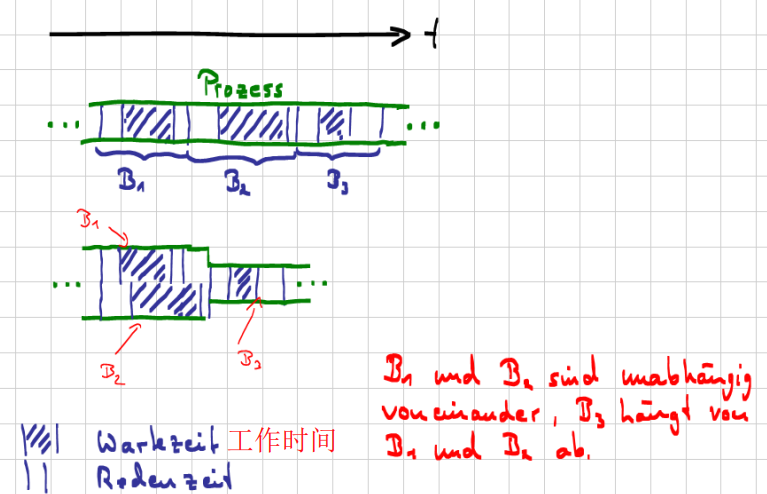 t
Prozess
... ...
B₁ B₂ B₃
B₁
... ...
B₂ B₃
B₁ und B₂ sind unabhängig
voneinander, B₃ hängt von
B₁ und B₂ ab.
Wartezeit 工作时间
Rechenzeit